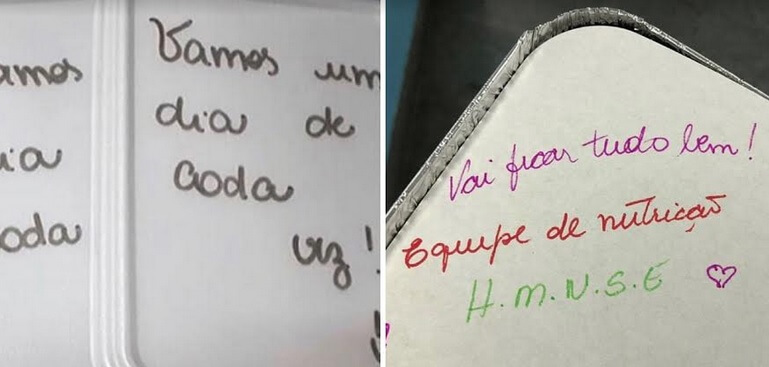 amos
ia
oda
Vamos um
dia de
coda
vez!
Vai ficar tudo bem!
Equipe de nutrição
H.M.N.S.E